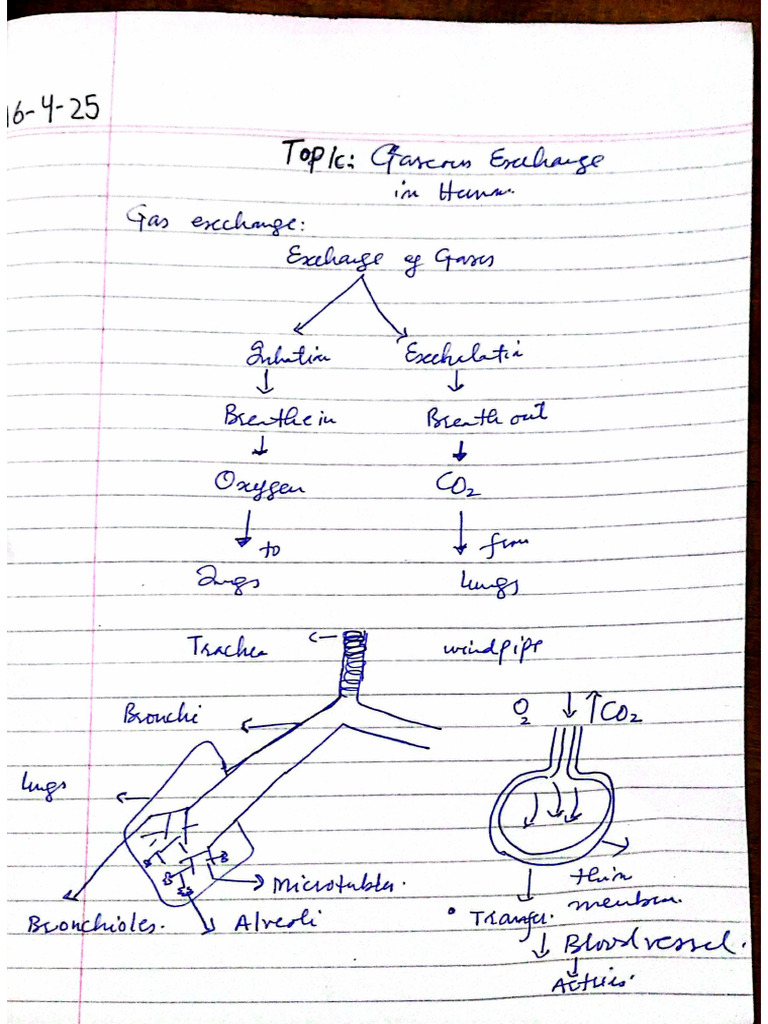 16-4-25
Topic: Gaseous Exchange
in Human.
Gas exchange:
Exchange of Gases
Inhation Exchhelatin
Breathe in Breath out
Oxygen CO2
to from
Lungs Lungs
Trachea windpipe
Bronchi O2 CO2
Lungs
thin
Microtubles. membran.
Bronchioles. Alveoli • Transfer.
Blood vessel.